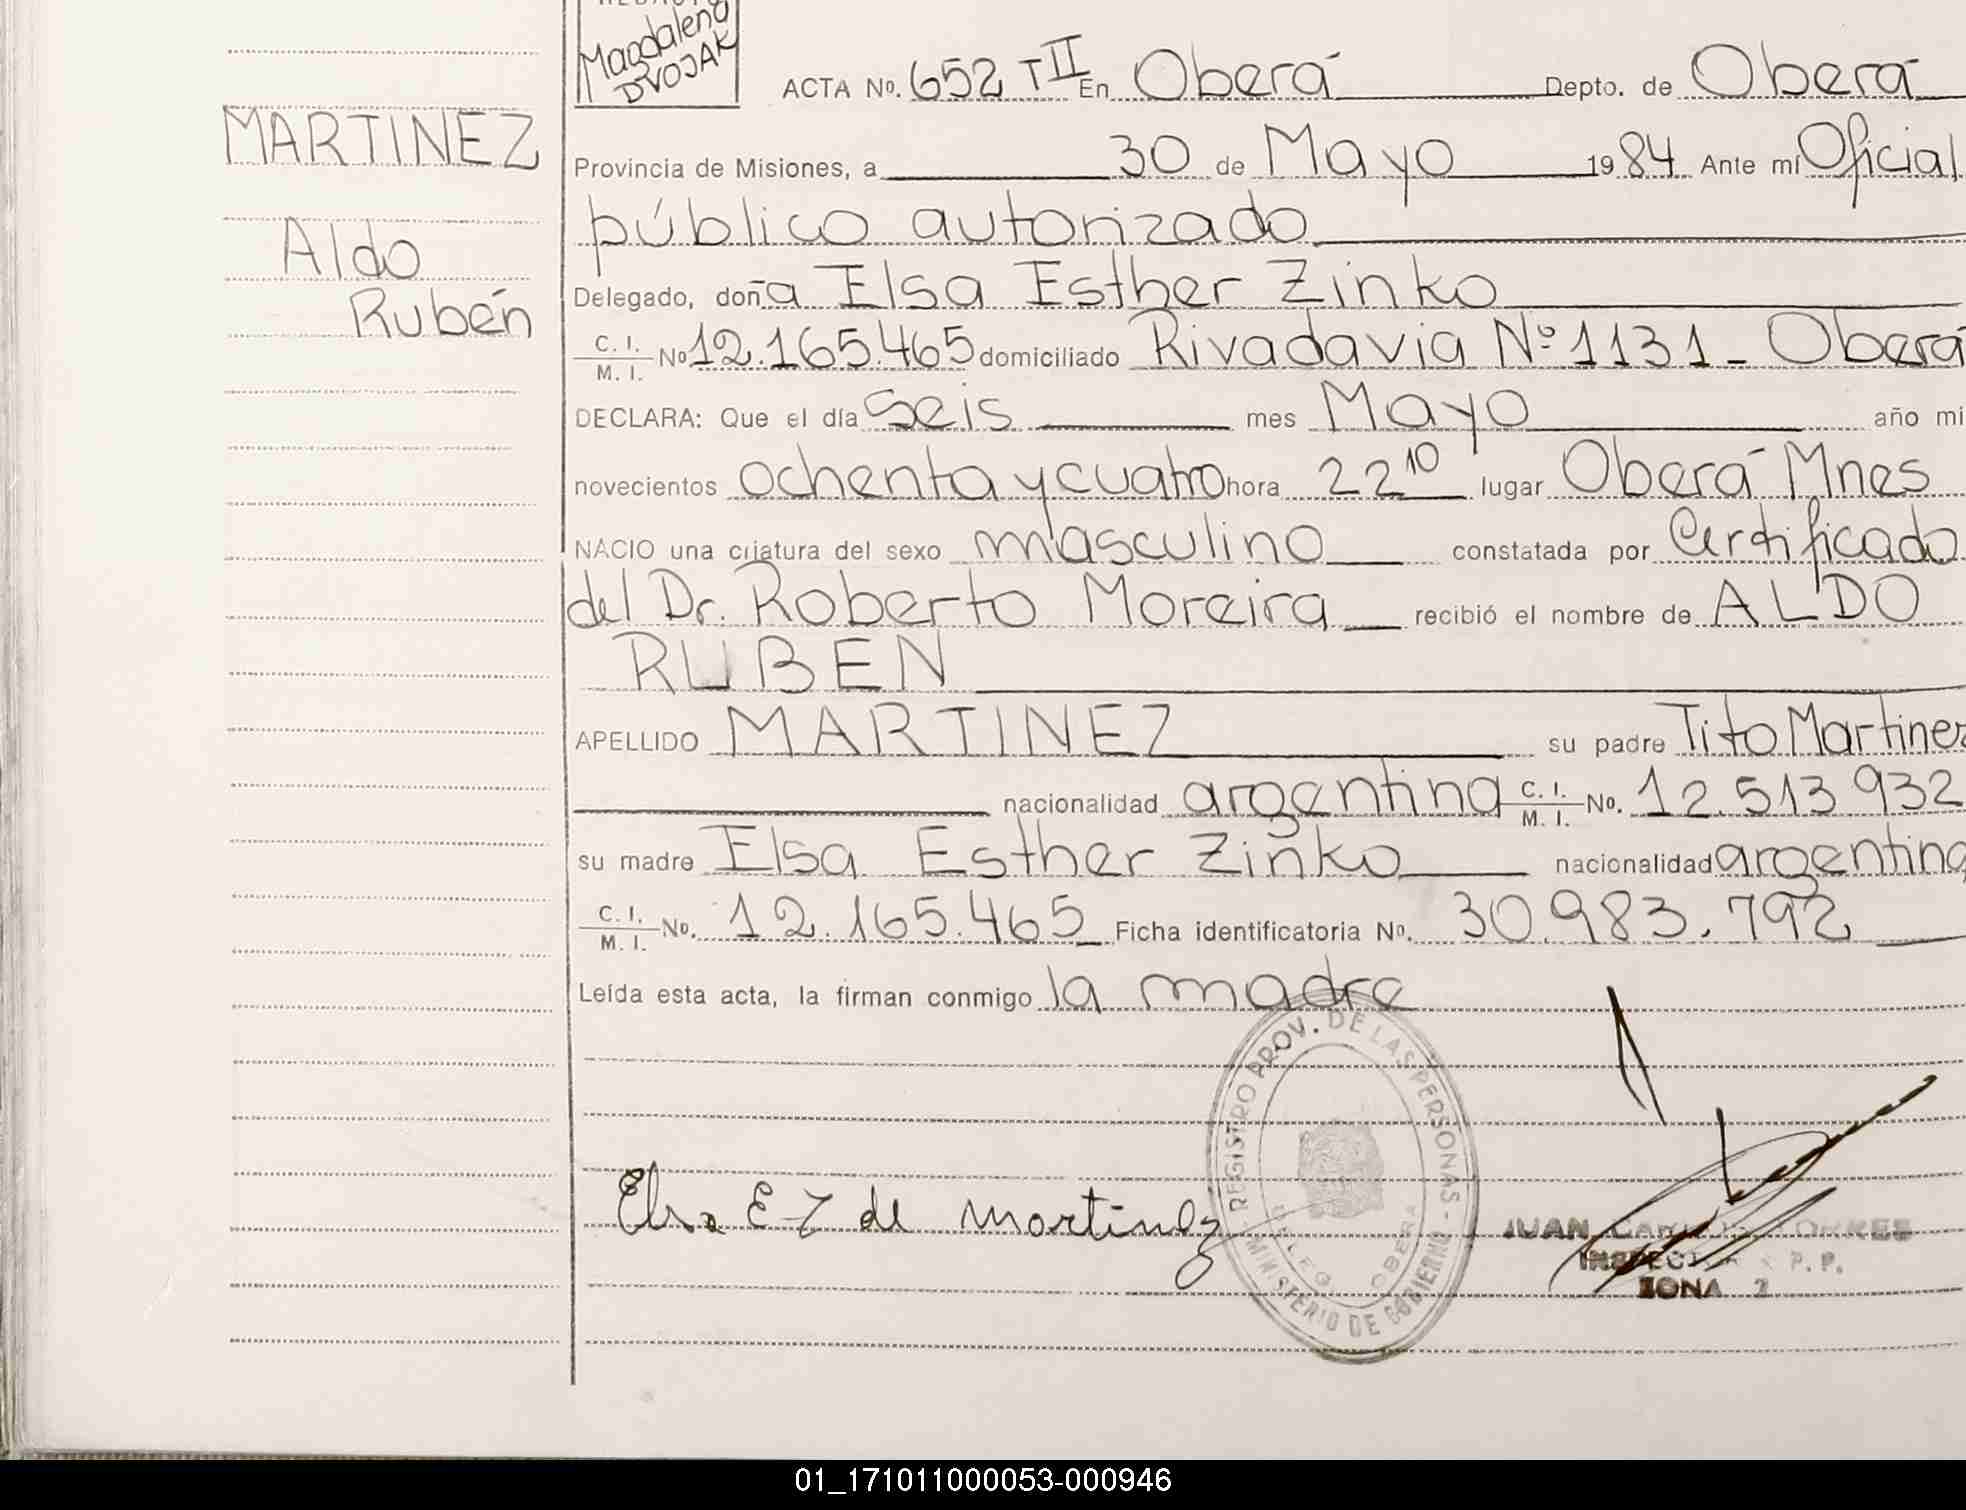 Magdalena
DVOJAK
ACTA Nº. 652 T II En Oberá Depto. de Oberá
MARTINEZ
Provincia de Misiones, a 30 de Mayo 1984 Ante mí Oficial
público autorizado
Aldo
Rubén
Delegado, doña Elsa Esther Zinko
C. I.
M. I. Nº 12.165.465 domiciliado Rivadavia Nº 1131 - Oberá
DECLARA: Que el día seis mes Mayo año mi
novecientos ochenta y cuatro hora 22 10 lugar Oberá Mnes
NACIO una criatura del sexo masculino constatada por Certificado
del Dr. Roberto Moreira recibió el nombre de ALDO
RUBEN
APELLIDO MARTINEZ su padre Tito Martinez
nacionalidad argentina C. I. M. I. Nº. 12.513 932
su madre Elsa Esther Zinko nacionalidad argentina
C. I. M. I. Nº. 12.165.465 Ficha identificatoria Nº. 30.983.792
Leída esta acta, la firman conmigo la madre
REGISTRO PROV. DE LAS PERSONAS - MINISTERIO DE GOBIERNO
DELEG. OBERA
Elsa E Z de Martinez
JUAN CARLOS TORRES
R. P. P.
ZONA 2
01_171011000053-000946